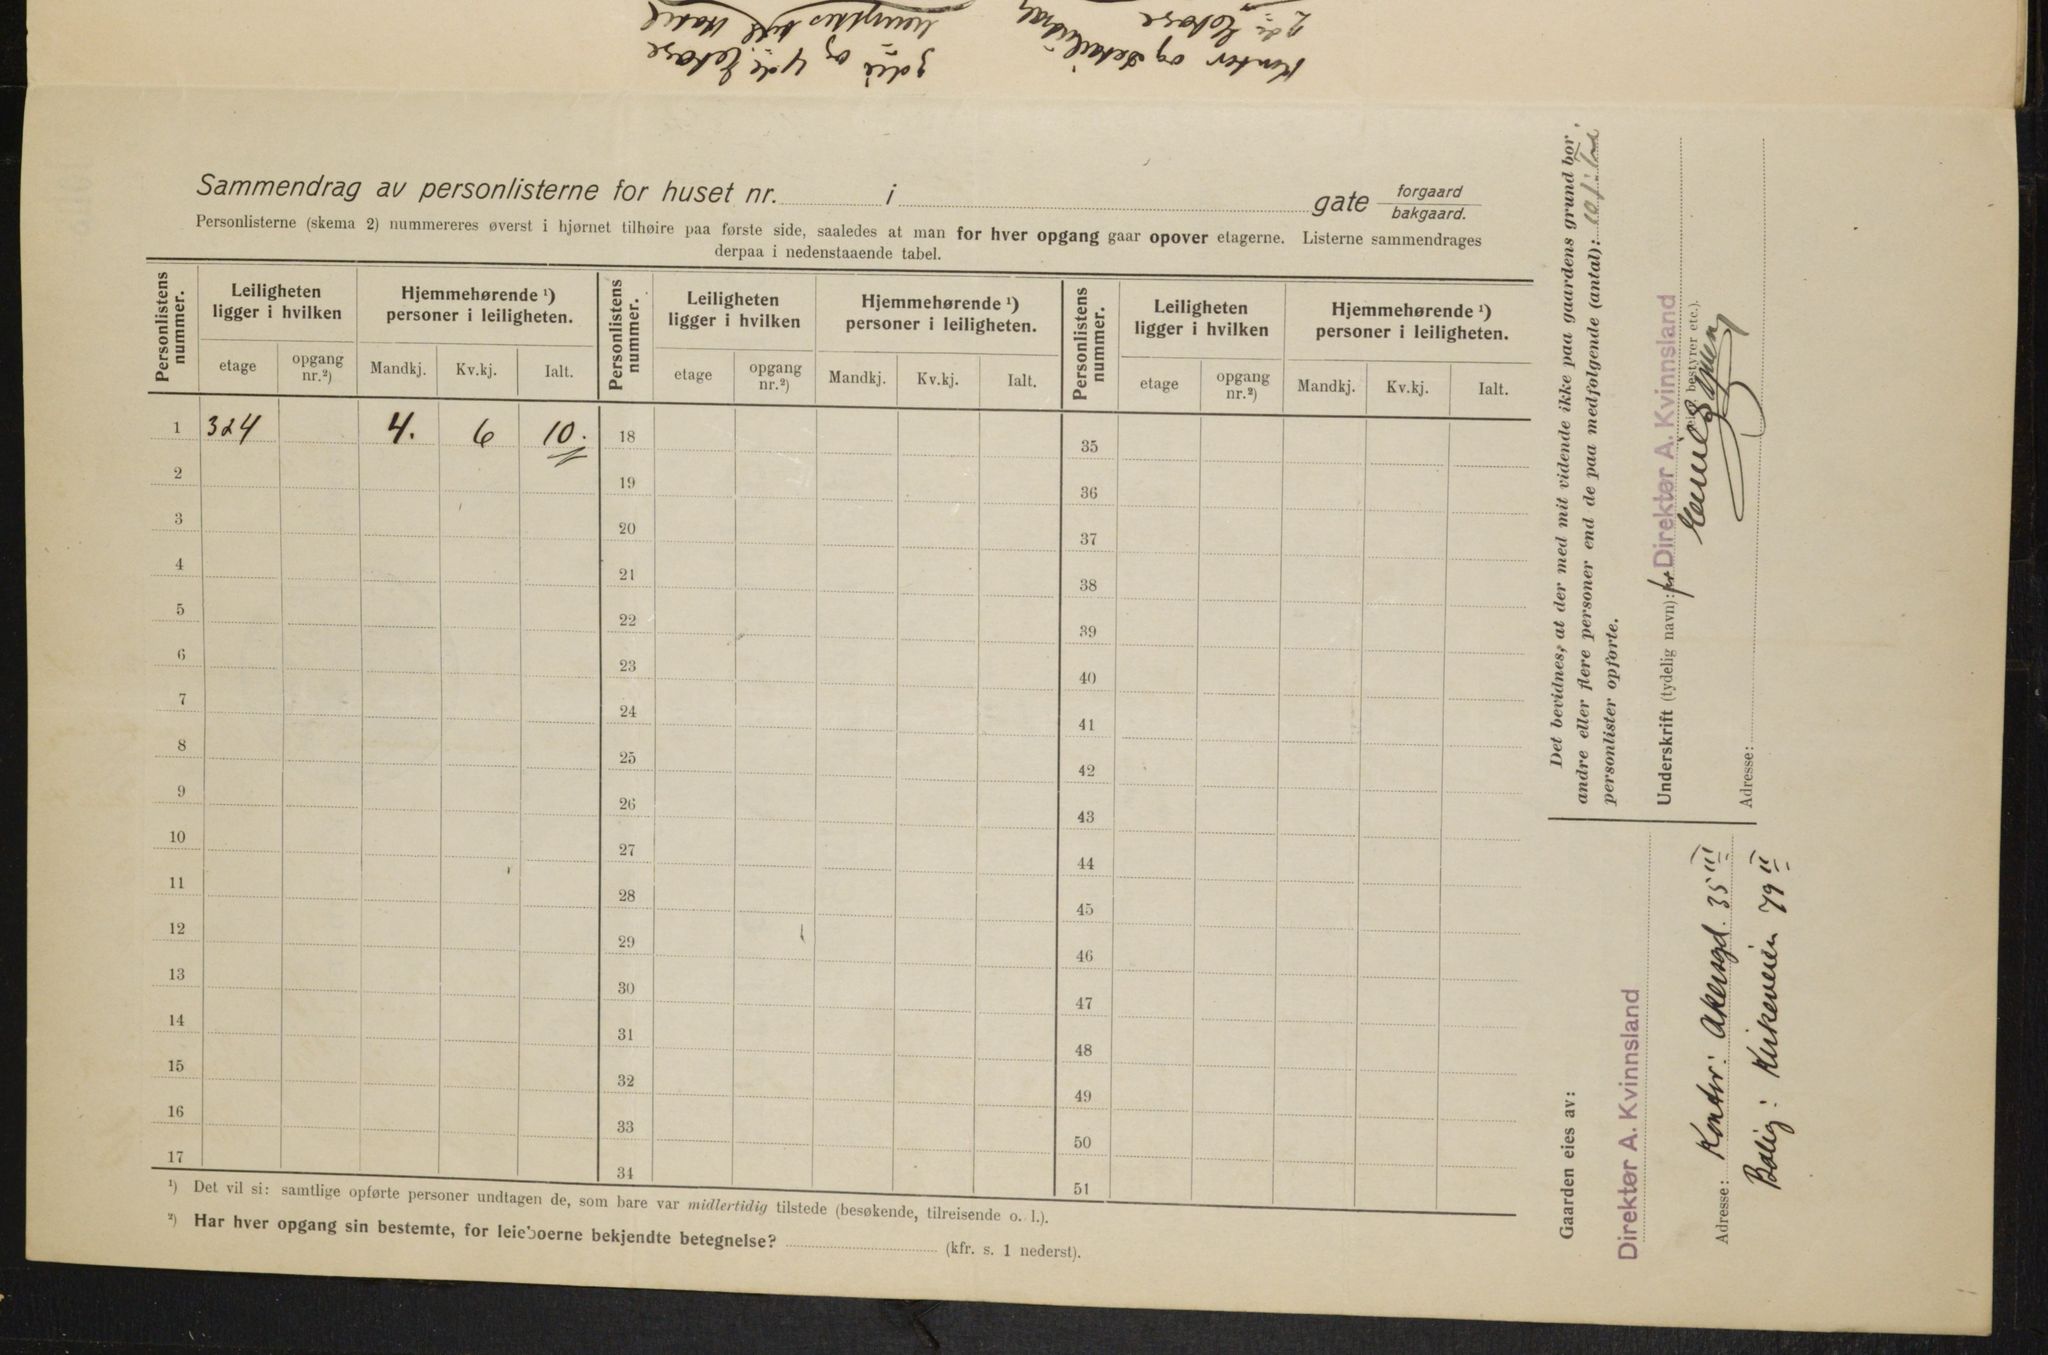 Kontor og Detailudsalg
2den Etage
3die og 4de Etage
benyttes til Hotel
Sammendrag av personlisterne for huset nr. i gate forgaard
bakgaard.
Personlisterne (skema 2) nummereres øverst i hjørnet tilhøire paa første side, saaledes at man for hver opgang gaar opover etagerne. Listerne sammendrages
derpaa i nedenstaaende tabel.
Personlistens nummer. Leiligheten ligger i hvilken Hjemmehørende ¹) personer i leiligheten. Personlistens nummer. Leiligheten ligger i hvilken Hjemmehørende ¹) personer i leiligheten. Personlistens nummer. Leiligheten ligger i hvilken Hjemmehørende ¹) personer i leiligheten.
etage opgang nr.²) Mandkj. Kv.kj. Ialt. etage opgang nr.²) Mandkj. Kv.kj. Ialt. etage opgang nr.²) Mandkj. Kv.kj. Ialt.
1 3 & 4 4. 6 10. 18 35
2 19 36
3 20 37
4 21 38
5 22 39
6 23 40
7 24 41
8 25 42
9 26 43
10 27 44
11 28 45
12 29 46
13 30 47
14 31 48
15 32 49
16 33 50
17 34 51
¹) Det vil si: samtlige opførte personer undtagen de, som bare var midlertidig tilstede (besøkende, tilreisende o. l.).
²) Har hver opgang sin bestemte, for leieboerne bekjendte betegnelse? (kfr. s. 1 nederst).
Det bevidnes, at der med mit vidende ikke paa gaardens grund bor
andre eller flere personer end de paa medfølgende (antal): 10
personlister opførte.
Underskrift (tydelig navn): for Direktør A. Kvinnsland
bestyrer etc.).
Emil
Adresse:
Gaarden eies av:
Direktør A. Kvinnsland
Adresse: Kontor: Akersgt. 35 III
Bolig: Kirkeveien 79 II